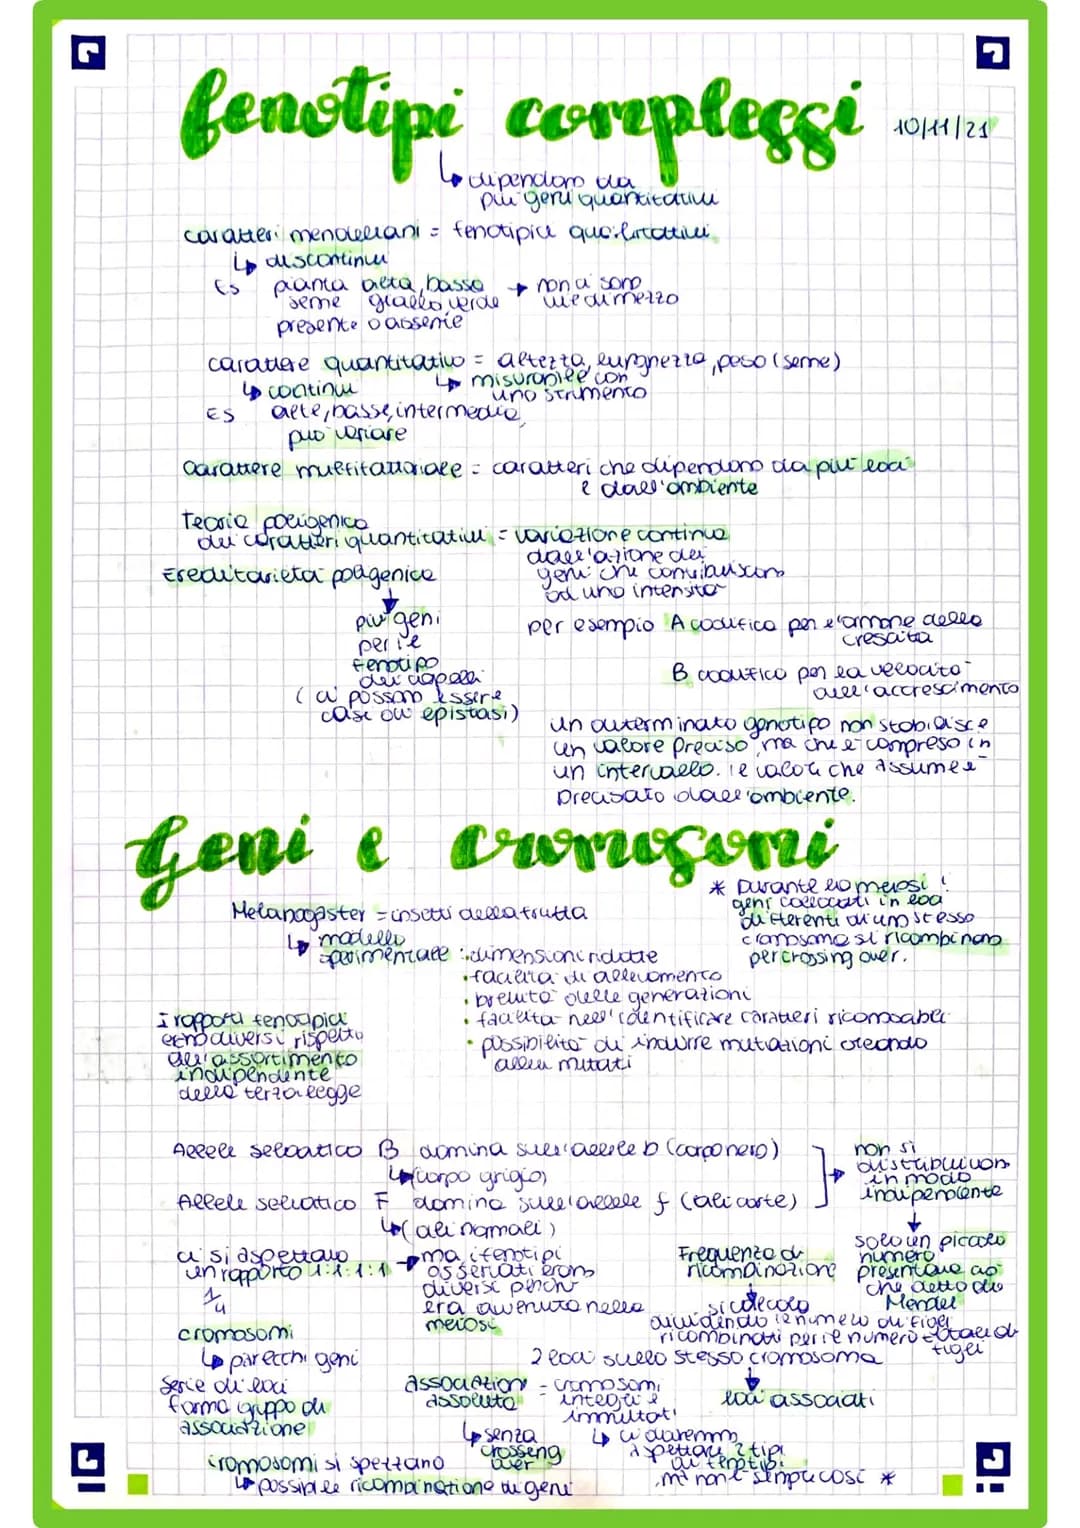 fenotipi complessi
10/11/21
↳ dipendono da
più geni quantitativi
caratteri mendeliani = fenotipici qualitativi
↳ discontinui
Es pianta alta, bassa → non ci sono
seme giallo, verde vie di mezzo
presente o assente
carattere quantitativo = altezza, lunghezza, peso (seme)
↳ continui ↳ misurabile con
uno strumento
ES alte, basse, intermedie,
può variare
carattere multifattoriale = caratteri che dipendono da più loci
e dall'ambiente
Teoria poligenica
dei caratteri quantitativi = variazione continua
dall'azione dei
geni che contribuiscono
ad una intensità
Ereditarietà poligenica
↓
più geni
per il
fenotipo
dei capelli
(ci possono essere
casi di epistasi)
per esempio A codifica per l'ormone della
crescita
B codifica per la velocità
dell'accrescimento
un determinato genotipo non stabilisce
un valore preciso, ma che è compreso in
un intervallo. il valore che assume è
precisato dall'ambiente.
Geni e cromosomi
Melanogaster = insetti della frutta
↳ modello
sperimentale : • dimensioni ridotte
• facilità di allevamento
• brevità delle generazioni
• facilità nell'identificare caratteri riconoscibili
• possibilità di indurre mutazioni creando
alleli mutati
* Durante la meiosi i
geni collocati in loci
differenti di uno stesso
cromosoma si ricombinano
per crossing over.
I rapporti fenotipici
erano diversi rispetto
all'assortimento
indipendente
della terza legge
Allele selvatico B domina sull'allele b (corpo nero)
↳ (corpo grigio)
Allele selvatico F domina sull'allele f (ali corte)
↳ (ali normali)
→ non si
distribuivano
in modo
indipendente
↓
solo un piccolo
numero
presentava ciò
che detto da
Mendel
ci si aspettava
un rapporto 1:1:1:1
1/4
→ ma i fenotipi
osservati erano
diversi perché
era avvenuta nella
meiosi
Frequenza di
ricombinazione
↓
si calcola
dividendo il numero di figli
ricombinati per il numero totale di
figli
cromosomi
↳ parecchi geni
serie di loci
forma gruppo di
associazione
2 loci sullo stesso cromosoma
↓
loci associati
association = cromosomi
assoluta integri e
immutati
↳ senza
crosseng
over
↳ ci daremmo
aspettare 2 tipi
di fenotipi
, ma non è sempre così *
cromosomi si spezzano
↳ possibile ricombinazione di geni